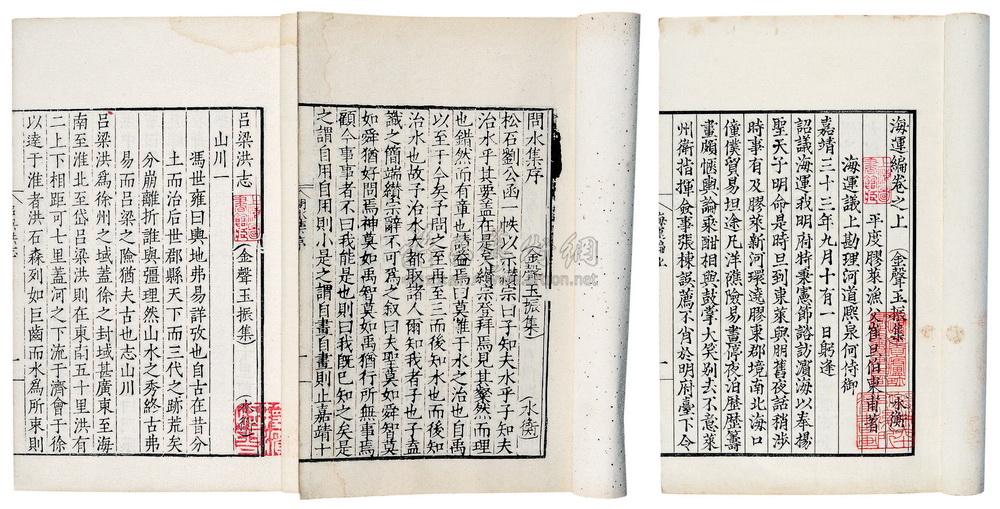 海運編卷之上 (金聲玉振集) 水衡
平度膠萊漁父崔旦伯東甫著
海運議上勘理河道熙泉何侍御
嘉靖三十三年九月十有一日躬逢
詔議海運我明府特秉憲節諮訪濱海以奉揚
聖天子明命是時旦到東萊與朋舊夜話稍涉
時事有及膠萊新河環遶膠東郡境南北海口
僮僕貿易坦途凡洋礁險易晝停夜泊歷歷籌
畫頗愜輿論乘酣相與鼓掌大笑别去不意萊
州衛指揮僉事張棟誤薦不肖於明府臺下令
問水集序 (金聲玉振集) (水衡)
松石劉公函一帙以示纘宗曰子知夫水乎子知夫
治水乎其要蓋在是矣纘宗登拜焉見其粲然而理
也錯然而有章也請益焉曰莫難于水之治也自昔
以至于今矣子問之至再至三而後知水也而後知
治水也故子治水大都取諸人爾知我者子也子盍
識之簡端纘宗辭不可爲之叙曰夫聖莫如舜智莫
如舜猶好問焉神莫如禹智莫如禹猶行所無事焉
顧今事事者不曰我能是也則曰我既已知之矣是
之謂自用自用則小是之謂自畫自畫則止嘉靖十
吕梁洪志 (金聲玉振集) (水衡)
山川一
馮世雍曰輿地弗易詳攷也自古在昔分
土而治后世郡縣天下而三代之跡荒矣
分崩離折誰與疆理然山水之秀終古弗
易而吕梁之險猶夫古也志山川
吕梁洪爲徐州之域蓋徐之封域甚廣東至海
南至淮北至岱吕梁洪則在東南五十里洪有
二上下相距可七里蓋河之下流于濟會于徐
以達于淮者洪石森列如巨齒而水為所束則